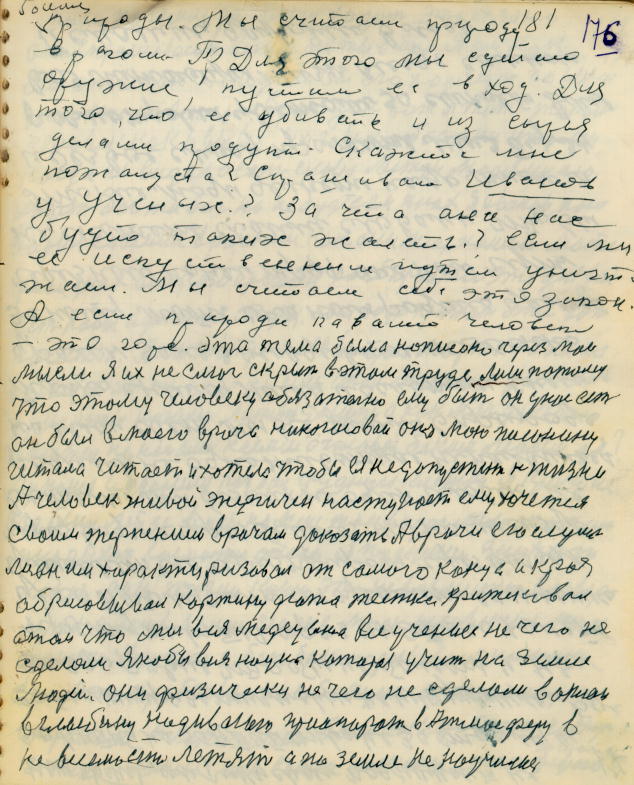 природы. Мы считаем природу 181 176
врагом. Для этого мы сделали
оружие пустили ее в ход. Для
того, что ее убивать и из сырья
делаем продукт. Скажите мне
пожалуста? Спрашивает Иванов
у ученых? За что она нас
будто таких жалеть? если мы
ее искуственым путем уничт
жаем. Мы считаем себе этя закон.
А если природа человека
– это горе. Эта тема была написано через мои
мысли я их не смог скрыть в этом труде, лиш потому
что этому человеку обязательно ему быт он
он были в моего врача мою
читала читает и хотела чтобы я не допустить к жизни
А человек живой энергичен наступает ему хочется
своим терпением врачам доказать А врачи его слуша
ли характиризовал от самого и края
обрисовывал картину даже жестко, критиковал
о том что мы вся медецина вся ученые не чего не
сделали Якобы вся наука которая учит на земле
людей. они физически не чего не сделали в
в в Атмосферу в
невесомость летят а по земле не научились